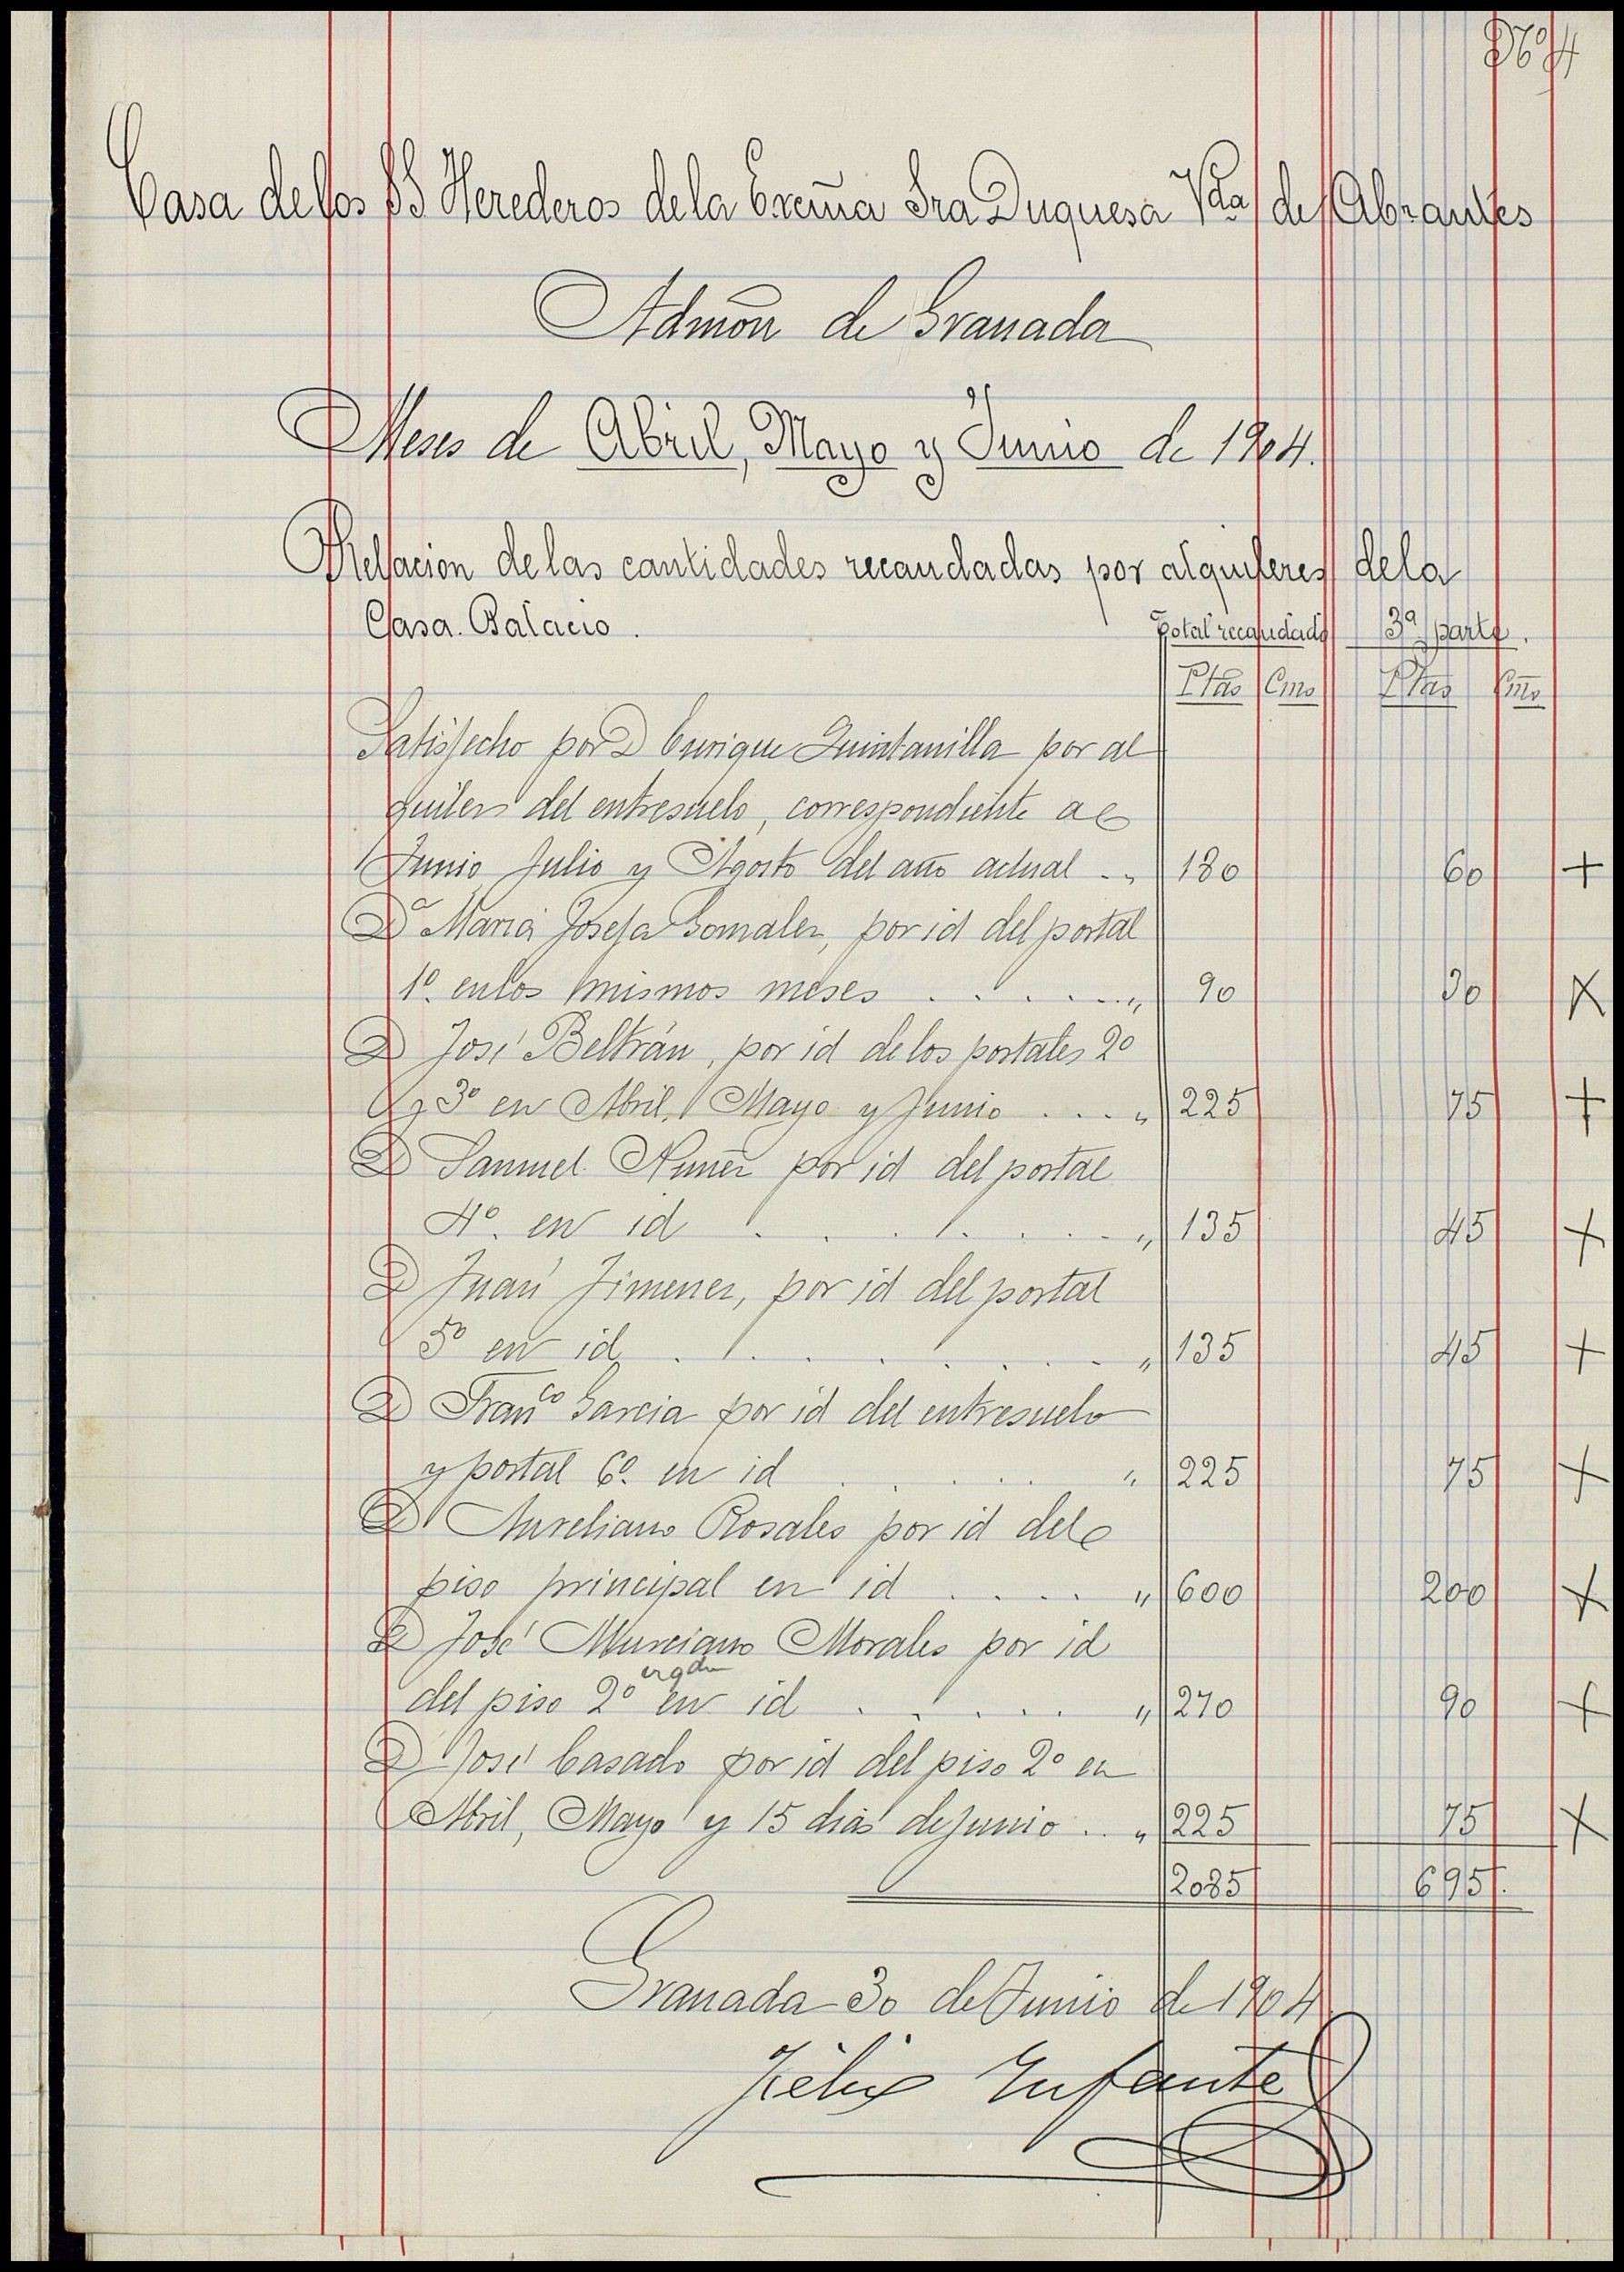 Nº 4
Casa de los SS Herederos de la Excma Sra Duquesa Vda de Abrantes
Admón de Granada
Meses de Abril, Mayo y Junio de 1904.
Relacion de las cantidades recaudadas por alquileres de la
Casa. Palacio. Total recaudado 3ª parte.
Ptas Cmos Ptas Cmos
Satisfecho por D Enrique Quintanilla por al
quiler del entresuelo, correspondiente a
Junio Julio y Agosto del año actual .. 180 60 +
Dª Maria Josefa Gonzalez, por id del portal
1º. en los mismos meses . . . . . . " 90 30 X
D José Beltrán, por id de los portales 2º
y 3º en Abril, Mayo y Junio . . . " 225 75 +
D Samuel Nuñez por id del portal
4º. en id . . . . . . . . " 135 45 +
D Juan Jimenez, por id del portal
5º en id . . . . . . . . " 135 45 +
D Franco Garcia por id del entresuelo
y portal 6º. en id . . . . . " 225 75 +
D Aureliano Rosales por id del
piso principal en id . . . . " 600 200 X
D José Murciano Morales por id
del piso 2º izqda en id . . . . . " 270 90 +
D José Casado por id del piso 2º en
Abril, Mayo y 15 dias de Junio . . " 225 75 X
2085 695.
Granada 30 de Junio de 1904.
Félix Infante